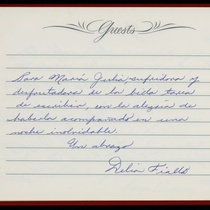 Guests
Para María Julia, sufridora y
disfrutadora de la bella tarea
de escribir, con la alegría de
haberla acompañado en una
noche inolvidable.
Un abrazo
Delia Fiallo